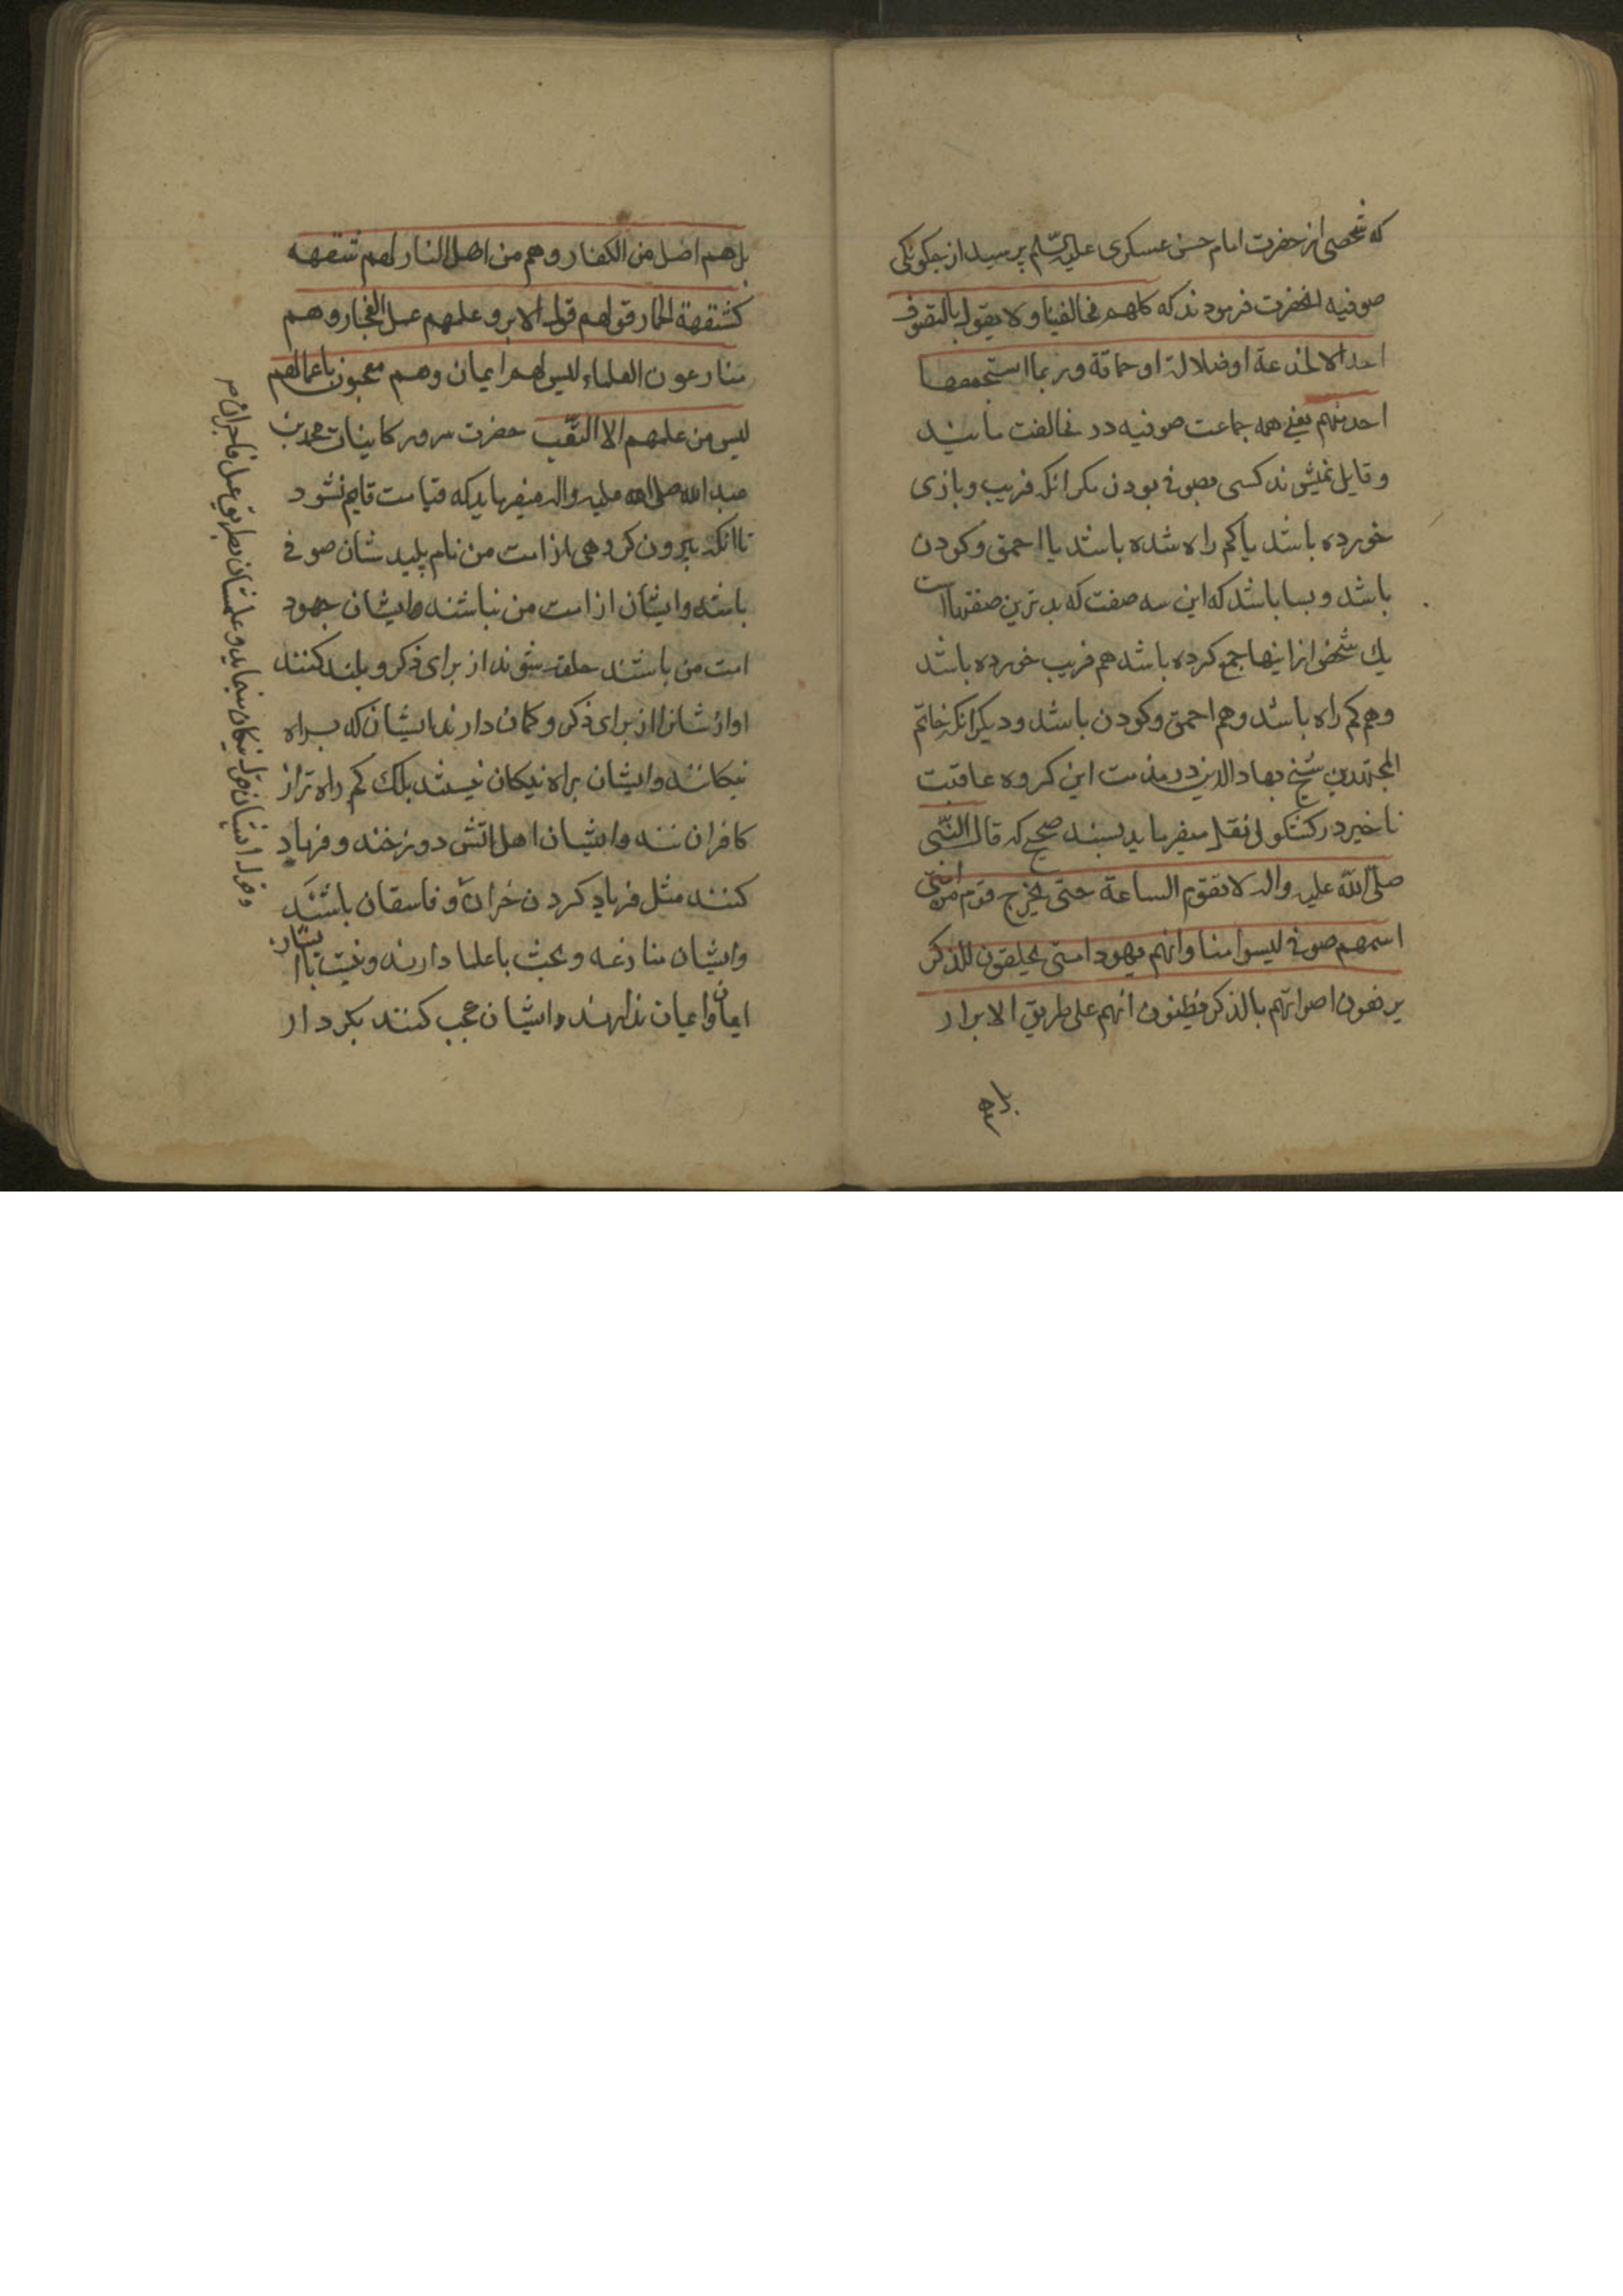 که شخصی از حضرت امام حسن عسکری علیه السلم پرسید از چکونکی
صوفیه انحضرت فرمودند که کلهم مخالفینا و لا یقول بالتصوف
احدا الا لخدعة او ضلالة او حماقة و ربما استجمعها
احد منهم یعنی همه جماعت صوفیه در مخالفت مایند
و قایل نمیشوند کسی بصوفی بودن مکر انکه فریب و بازی
خورده باشد یا کم راه شده باشد یا احمق و کودن
باشد و بسا باشد که این سه صفت که بدترین صفتهااست
یك شخص از اینها جمع کرده باشد هم فریب خورده باشد
و هم کم راه باشد و هم احمق و کودن باشد و دیکر انکه خاتم
المجتهدین شیخ بهاء الدین در مذمت این کروه عاقبت
ناخیر در کشکول نقل میفرماید بسند صحیح که قال النبی
صلی الله علیه واله لا تقوم الساعة حتی یخرج قوم من امتی
اسمهم صوفی لیسوا منا وانهم یهود امتی یحلقون للذکر
یرفعون اصواتهم بالذکر یظنون انهم علی طریق الابرار
بل هم
بل هم اضل من الکفار و هم من اهل النار لهم شقهه
کشقهة الحمار قولهم قول الابرو علمهم عمل الفجار و هم
منارعون العلماء لیس لهم ایمان و هم معجبون باعمالهم
لیس من علمهم الا التعب حضرت سرور کاینات محمد بن
عبد الله صلی الله علیه واله میفرماید که قیامت قایم نشود
تا انکه بیرون کروهی از امت من نام پلید شان صوفی
باشد و ایشان از امت من نباشند و ایشان جهود
امت من باشند حلقه شوند از برای ذکر و بلند کنند
اواز شانرا از برای ذکر و کمان دارند ایشان که براه
نیکانند و ایشان براه نیکان نیستند بلکه کم راه تر از
کافران نند و ایشان اهل اتش دوزخند و فرهاد
کنند مثل فرهاد کردن خران و فاسقان باشند
وایشان منازعه و بحث با علما دارند و نیست باایشان
ایمان و ایشان عجب کنند بکردار
و قول ایشان قول نیکان مینماید و علمشان بطریق عمل فاجران